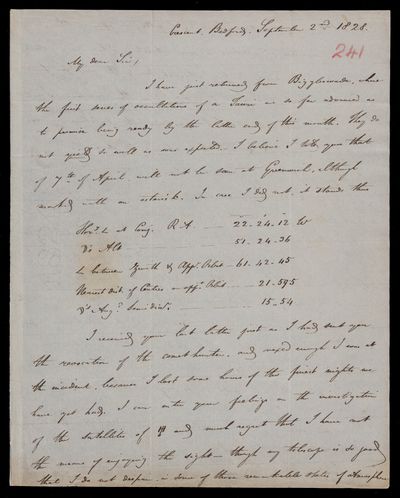 Crescent, Bedford. September 2nd 1828.
241
My dear Sir,
I have just returned from Biggleswade, where
the first series of occultations of α Tauri are so far advanced as
to promise being ready by the latter end of this month. They do
not so well as was expected. I believe I told you that
of 7th of April will not be seen at Greenwich, although
marked with an asterisk. In case I did not, it stands thus
at Conj. R.A. 22-24-12 W
Do Alt 51-24-36
∠ between Zenith & appt. Orbit - 61-42-45
Nearest dist. of Centres - appt. Orbit - 21-595
Augd. Semidiamr. 15-54
I received your last letter just as I had sent you
the of the comet hunter, and vexed enough I was at
the incident, because I lost some hours of the finest nights we
have yet had. I can enter your feelings on the investigation
of the satellites of ♅ and much regret that I have not
the means of enjoying the sight - though my telescope is so good
that I do not despair in some of those remarkable states of atmosphere